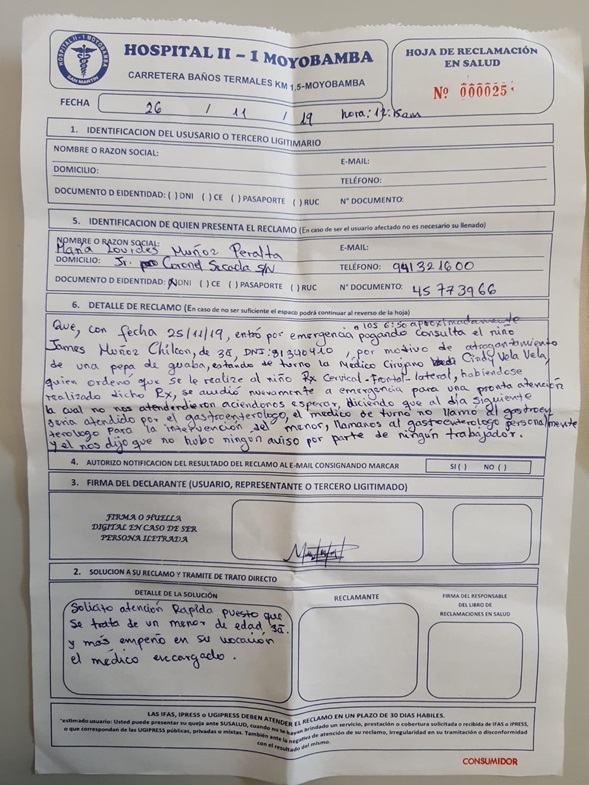 HOSPITAL II-1 MOYOBAMBA
SAN MARTIN
HOSPITAL II – 1 MOYOBAMBA
CARRETERA BAÑOS TERMALES KM 1,5-MOYOBAMBA
HOJA DE RECLAMACIÓN
EN SALUD
Nº 000025
FECHA 26 / 11 / 19 hora: 12:15am
1. IDENTIFICACION DEL USUSARIO O TERCERO LIGITIMARIO
NOMBRE O RAZON SOCIAL:
E-MAIL:
DOMICILIO:
TELÉFONO:
DOCUMENTO D EIDENTIDAD: ( ) DNI ( ) CE ( ) PASAPORTE ( ) RUC N° DOCUMENTO:
5. IDENTIFICACION DE QUIEN PRESENTA EL RECLAMO (En caso de ser el usuario afectado no es necesario su llenado)
NOMBRE O RAZON SOCIAL:
E-MAIL:
Maria Lourdes Muñoz Peralta
DOMICILIO: Jr. Coronel Secada s/N
TELÉFONO: 941321600
DOCUMENTO D EIDENTIDAD: (X) DNI ( ) CE ( ) PASAPORTE ( ) RUC N° DOCUMENTO: 45773966
6. DETALLE DE RECLAMO (En caso de no ser suficiente el espacio podrá continuar al reverso de la hoja)
a las 6:50 aproximadamente
Que, con fecha 25/11/19, entró por emergencia pagando consulta el niño
James Muñoz Chilcon, de 3a, DNI: 81340410, por motivo de atragantamiento
de una pepa de guaba, estando de turno la Médico Cirujano Cindy Vela Vela,
quien ordenó que se le realize al niño Rx Cervical-Frontal-lateral, habiendose
realizado dicho Rx, se acudió nuevamente a emergencia para una pronta atención
la cual no nos atendieron aciendonos esperar, diciendo que al día siguiente
seria atendido por el gastroenterologo, el médico de turno no llamó al gastroen
terologo para la intervención del menor, llamamos al gastroenterologo personalmente
y el nos dijo que no hubo ningún aviso por parte de ningún trabajador.
4. AUTORIZO NOTIFICACION DEL RESULTADO DEL RECLAMO AL E-MAIL CONSIGNANDO MARCAR SI ( ) NO ( )
3. FIRMA DEL DECLARANTE (USUARIO, REPRESENTANTE O TERCERO LEGITIMADO)
FIRMA O HUELLA
DIGITAL EN CASO DE SER
PERSONA ILETRADA
2. SOLUCION A SU RECLAMO Y TRAMITE DE TRATO DIRECTO
DETALLE DE LA SOLUCIÓN
RECLAMANTE
FIRMA DEL RESPONSABLE
DEL LIBRO DE
RECLAMACIONES EN SALUD
Solicito atención Rapida puesto que
se trata de un menor de edad 3a.
y más empeño en su vocación
el médico encargado.
LAS IFAS, IPRESS o UGIPRESS DEBEN ATENDER EL RECLAMO EN UN PLAZO DE 30 DIAS HABILES.
"estimado usuario: Usted puede presentar su queja ante SUSALUD, cuando no se hayan brindado un servicio, prestación o cobertura solicitada o recibida de IFAS o IPRESS,
o que correspondan de las UGIPRESS públicas, privadas o mixtas. También ante la negativa de atención de su reclamo, irregularidad en su tramitación o disconformidad
con el resultado del mismo.
CONSUMIDOR